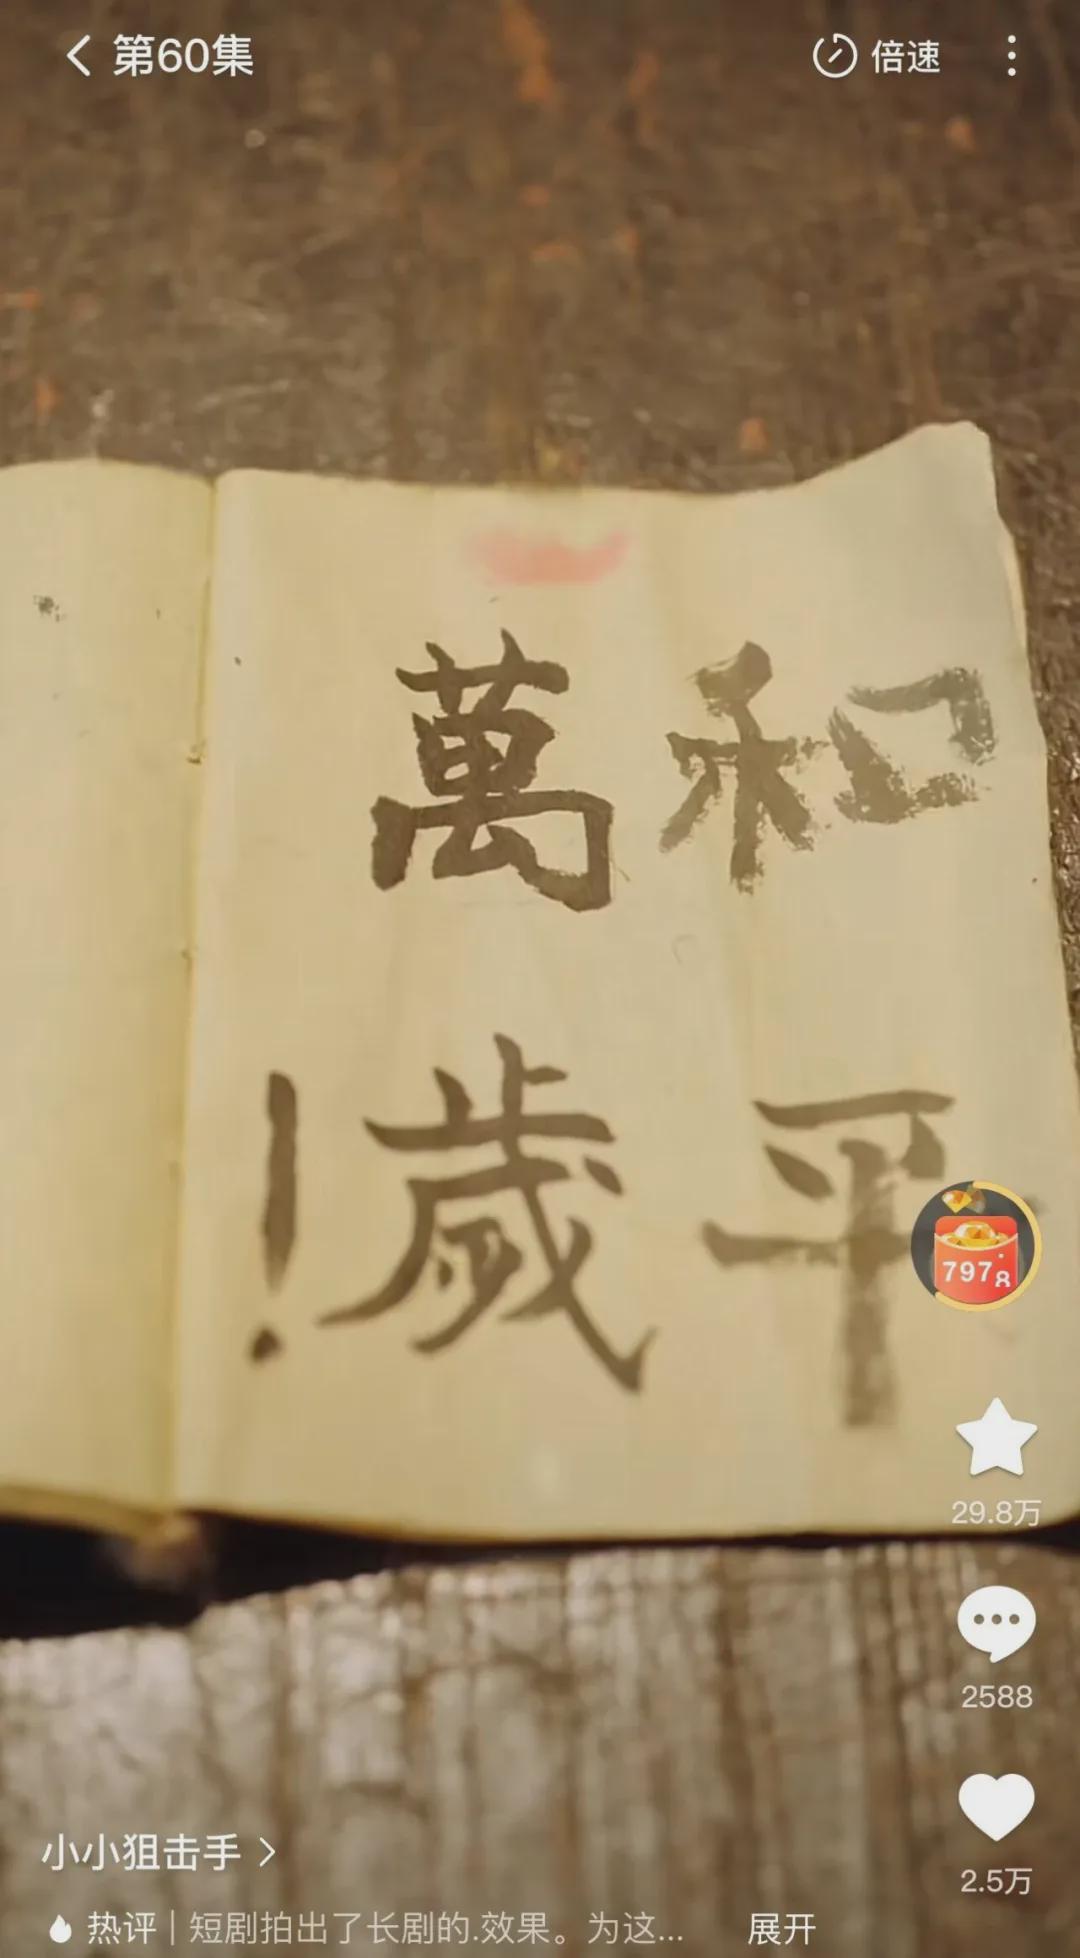 第60集
倍速
和平
萬歲!
797
29.8万
2588
2.5万
小小狙击手
热评 | 短剧拍出了长剧的.效果。为这... 展开